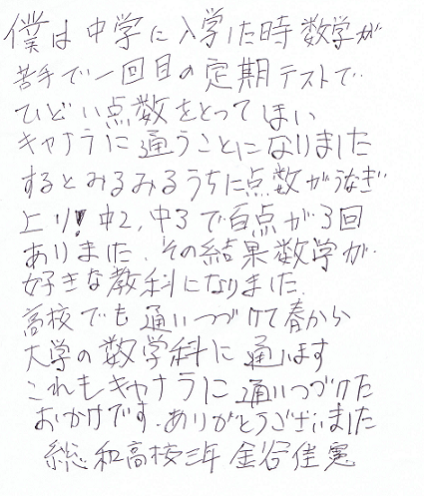 僕は中学に入学した時数学が
苦手で一回目の定期テストで
ひどい点数をとってしまい
キャナラに通うことになりました
するとみるみるうちに点数がうなぎ
上り!中2,中3で百点が3回
ありました.その結果数学が
好きな教科になりました.
高校でも通いつづけて春から
大学の数学科に通います
これもキャナラに通いつづけた
おかげです.ありがとうございました
総和高校三年 金谷佳憲